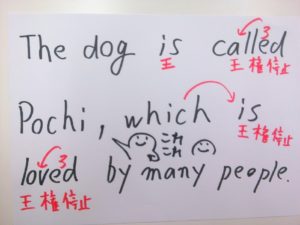 The dog is called
王 王権停止
Pochi, which is
王権停止
これ これ
loved by many people.
王権停止